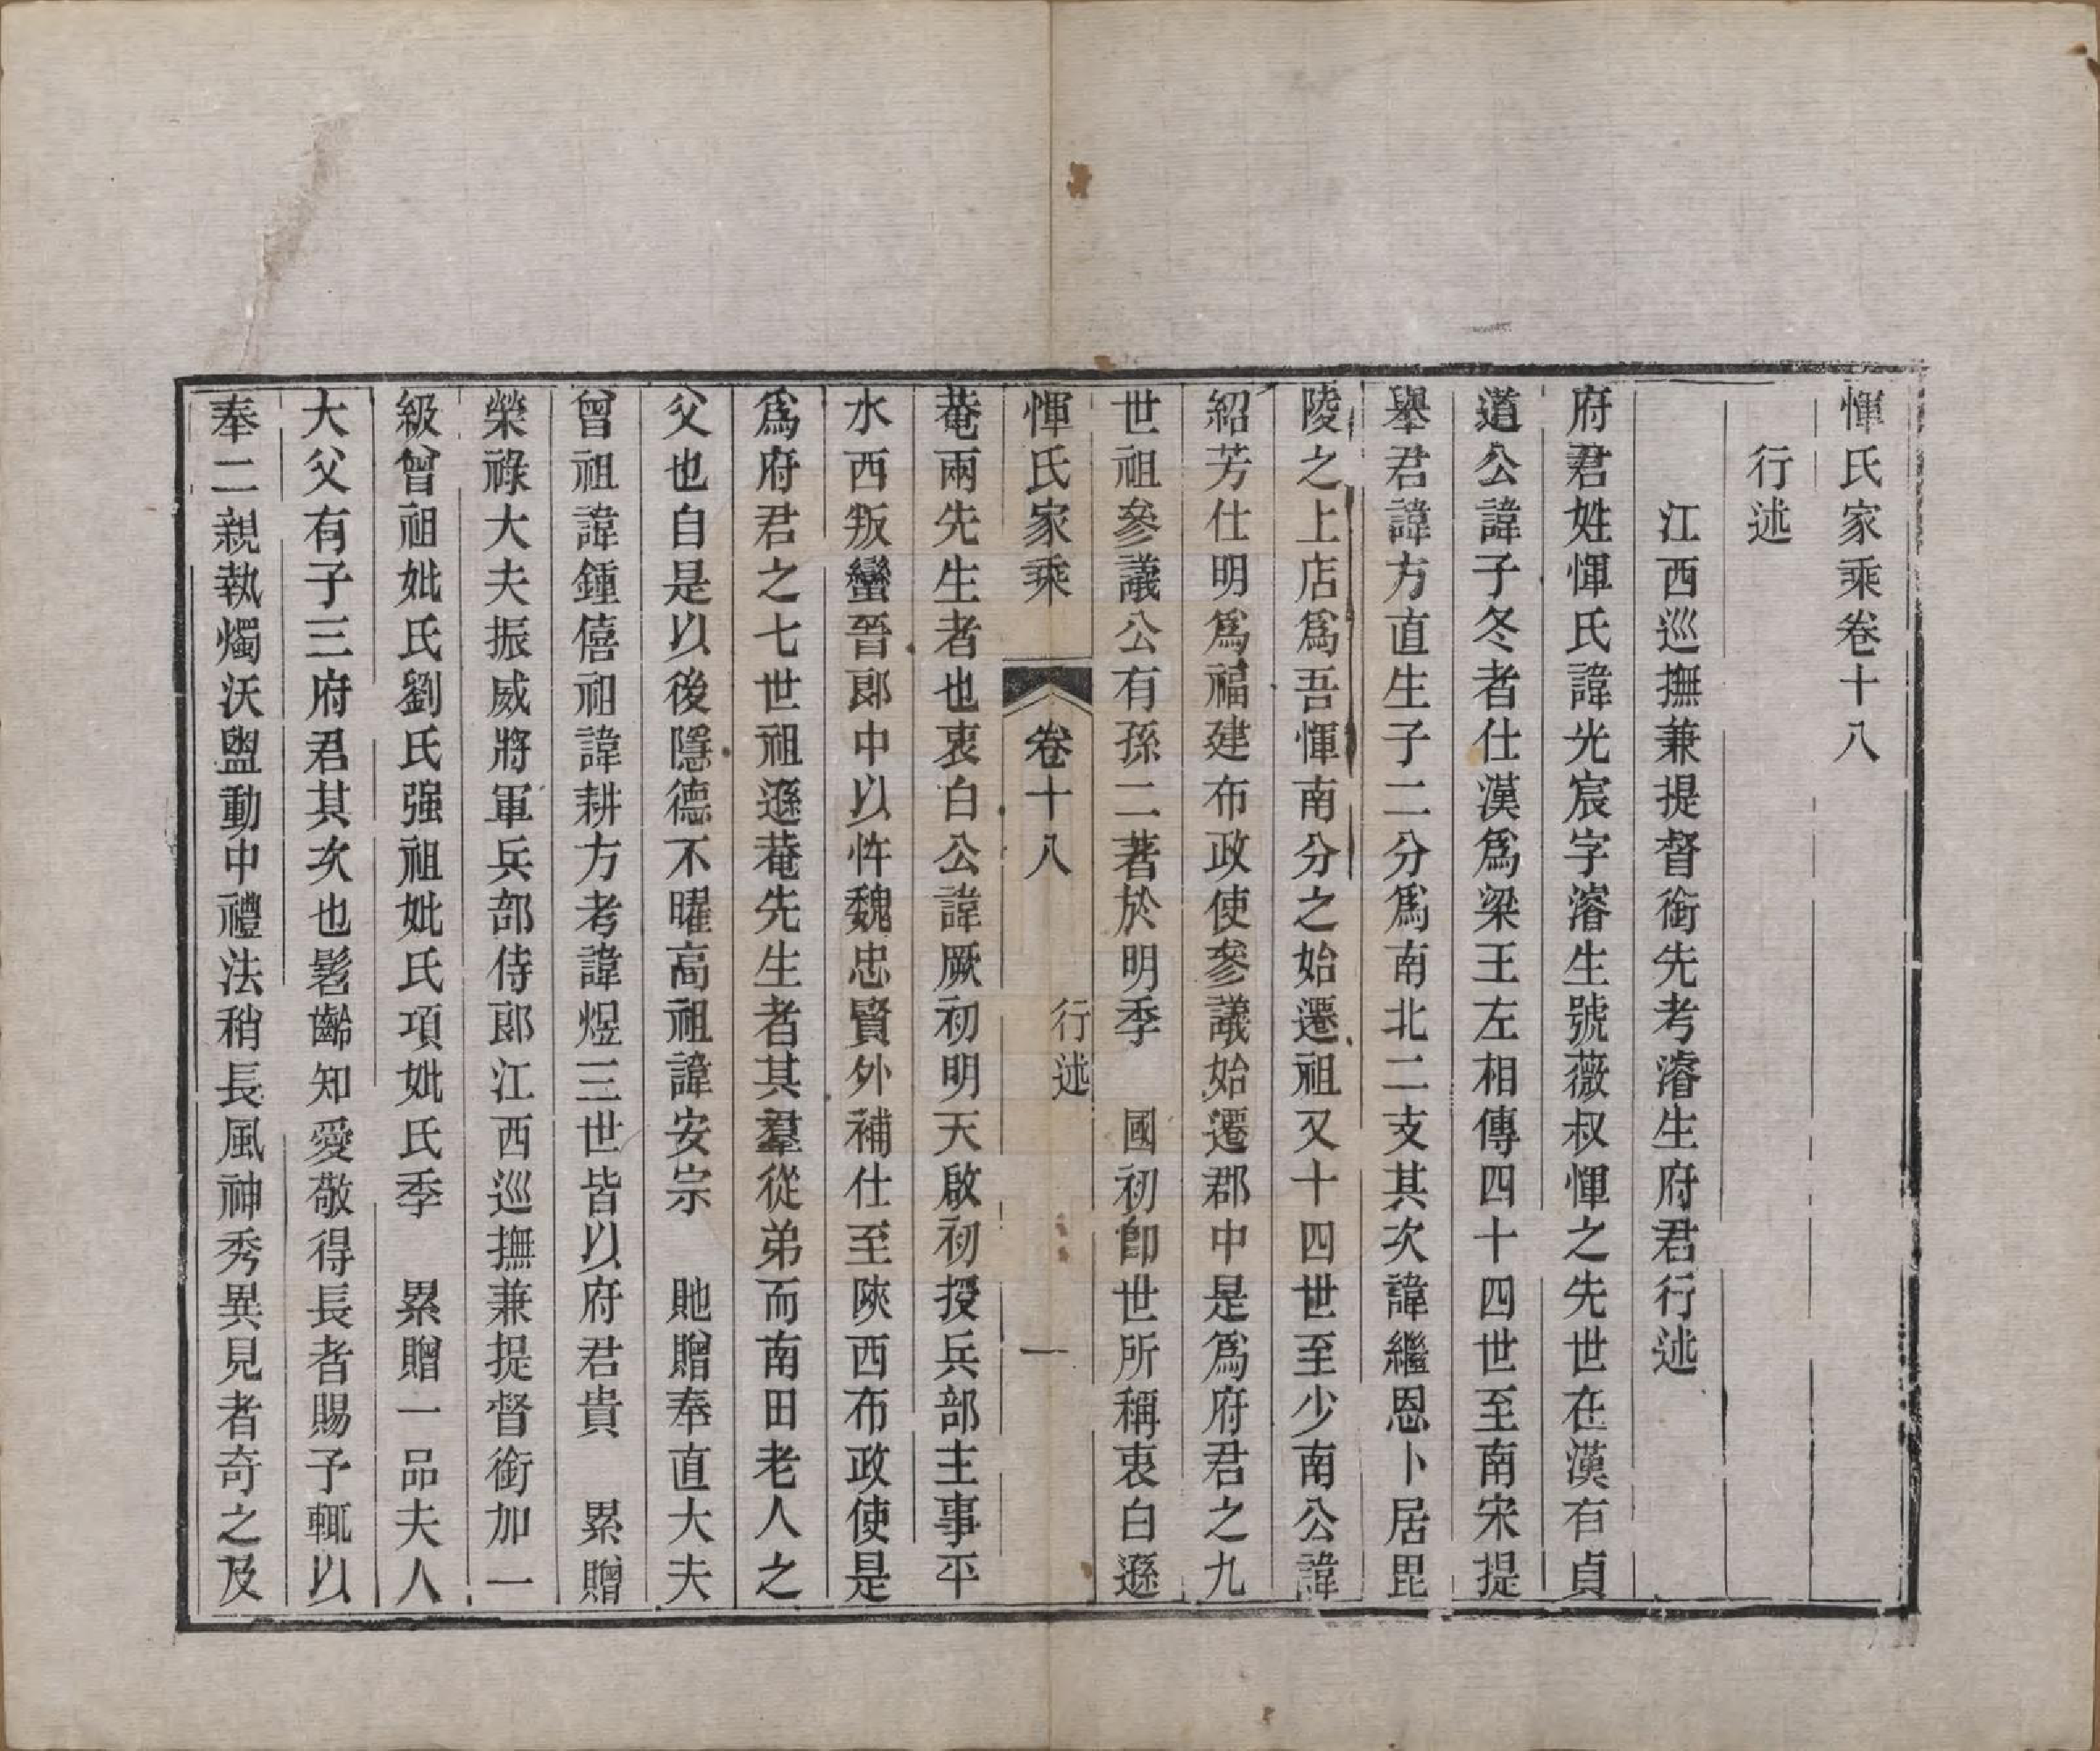 惲氏家乘卷十八
行述
江西巡撫兼提督銜先考濬生府君行述
府君姓惲氏諱光宸字濬生號薇叔惲之先世在漢有貞
道公諱子冬者仕漢爲梁王左相傳四十四世至南宋提
舉君諱方直生子二分爲南北二支其次諱繼恩卜居毘
陵之上店爲吾惲南分之始遷祖又十四世至少南公諱
紹芳仕明爲福建布政使參議始遷郡中是爲府君之九
世祖參議公有孫二著於明季　國初卽世所稱衷白遜
惲氏家乘　卷十八　行述　一
菴兩先生者也衷白公諱厥初明天啟初授兵部主事平
水西叛蠻晉郎中以忤魏忠賢外補仕至陝西布政使是
爲府君之七世祖遜菴先生者其羣從弟而南田老人之
父也自是以後隱德不曜高祖諱安宗　貤贈奉直大夫
曾祖諱鍾僖祖諱耕方考諱煜三世皆以府君貴　累贈
榮祿大夫振威將軍兵部侍郎江西巡撫兼提督銜加一
級曾祖妣氏劉氏强祖妣氏項妣氏季　累贈一品夫人
大父有子三府君其次也髫齡知愛敬得長者賜予輒以
奉二親執燭沃盥動中禮法稍長風神秀異見者奇之及